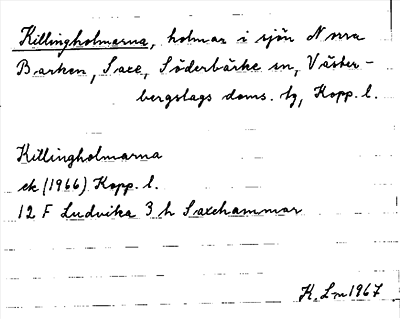 Killingholmarna, holmar i sjön Norra
Barken, Saxe, Söderbärke sn, Väster-
bergslags doms. tg, Kopp. l.
Killingholmarna
ek (1966) Kopp. l.
12 F Ludvika 3 h Saxehammar
K. Lm 1967